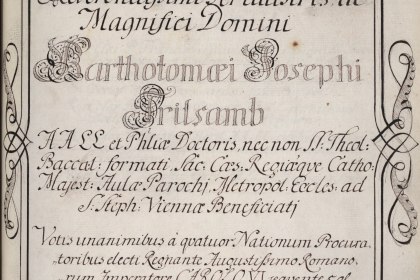 Magnifici Domini
Bartholomæi Josephi
Grilsamb
AA LL et Phliæ Doctoris, nec non Ss: Theol:
Baccal: formati Sac: Cæs: Regiæqve Catho:
Majest: Aulæ Parochi, Metropol: Eccles: ad
S: Steph: Viennæ Beneficiatj
Votis unanimibus à quatuor Nationum Procura,,
toribus electi Regnante Augustissimo Romano,,
rum Imperatore CAROLO VI